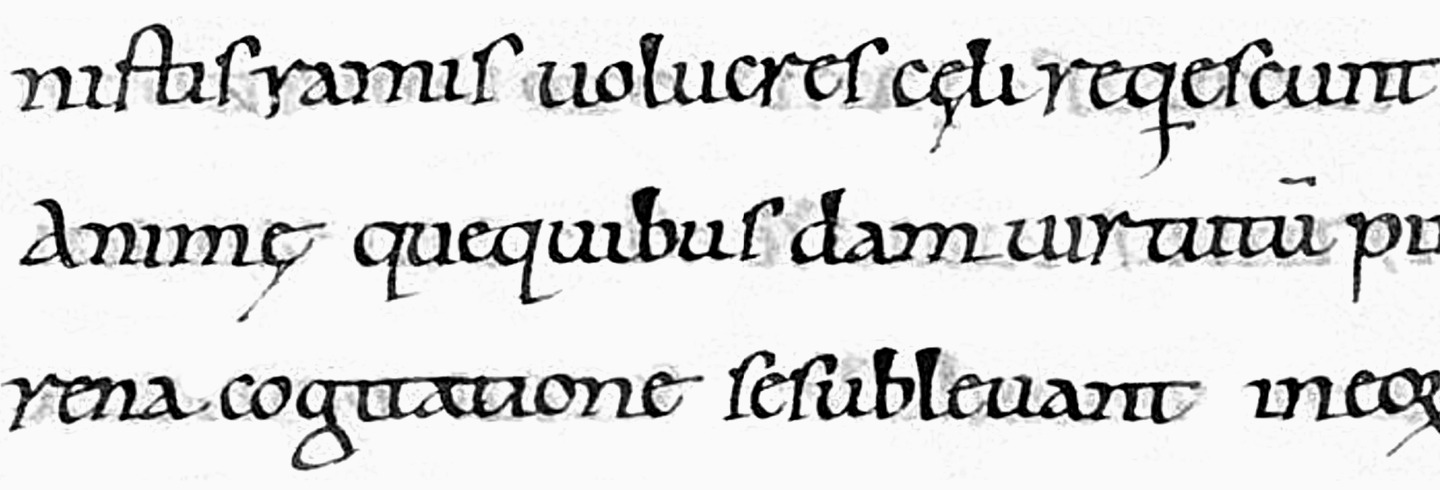 nistis ramis uolucres cęli reqescunt
Animę quequibus dam uirtutū
rena cogitatione sesubleuant